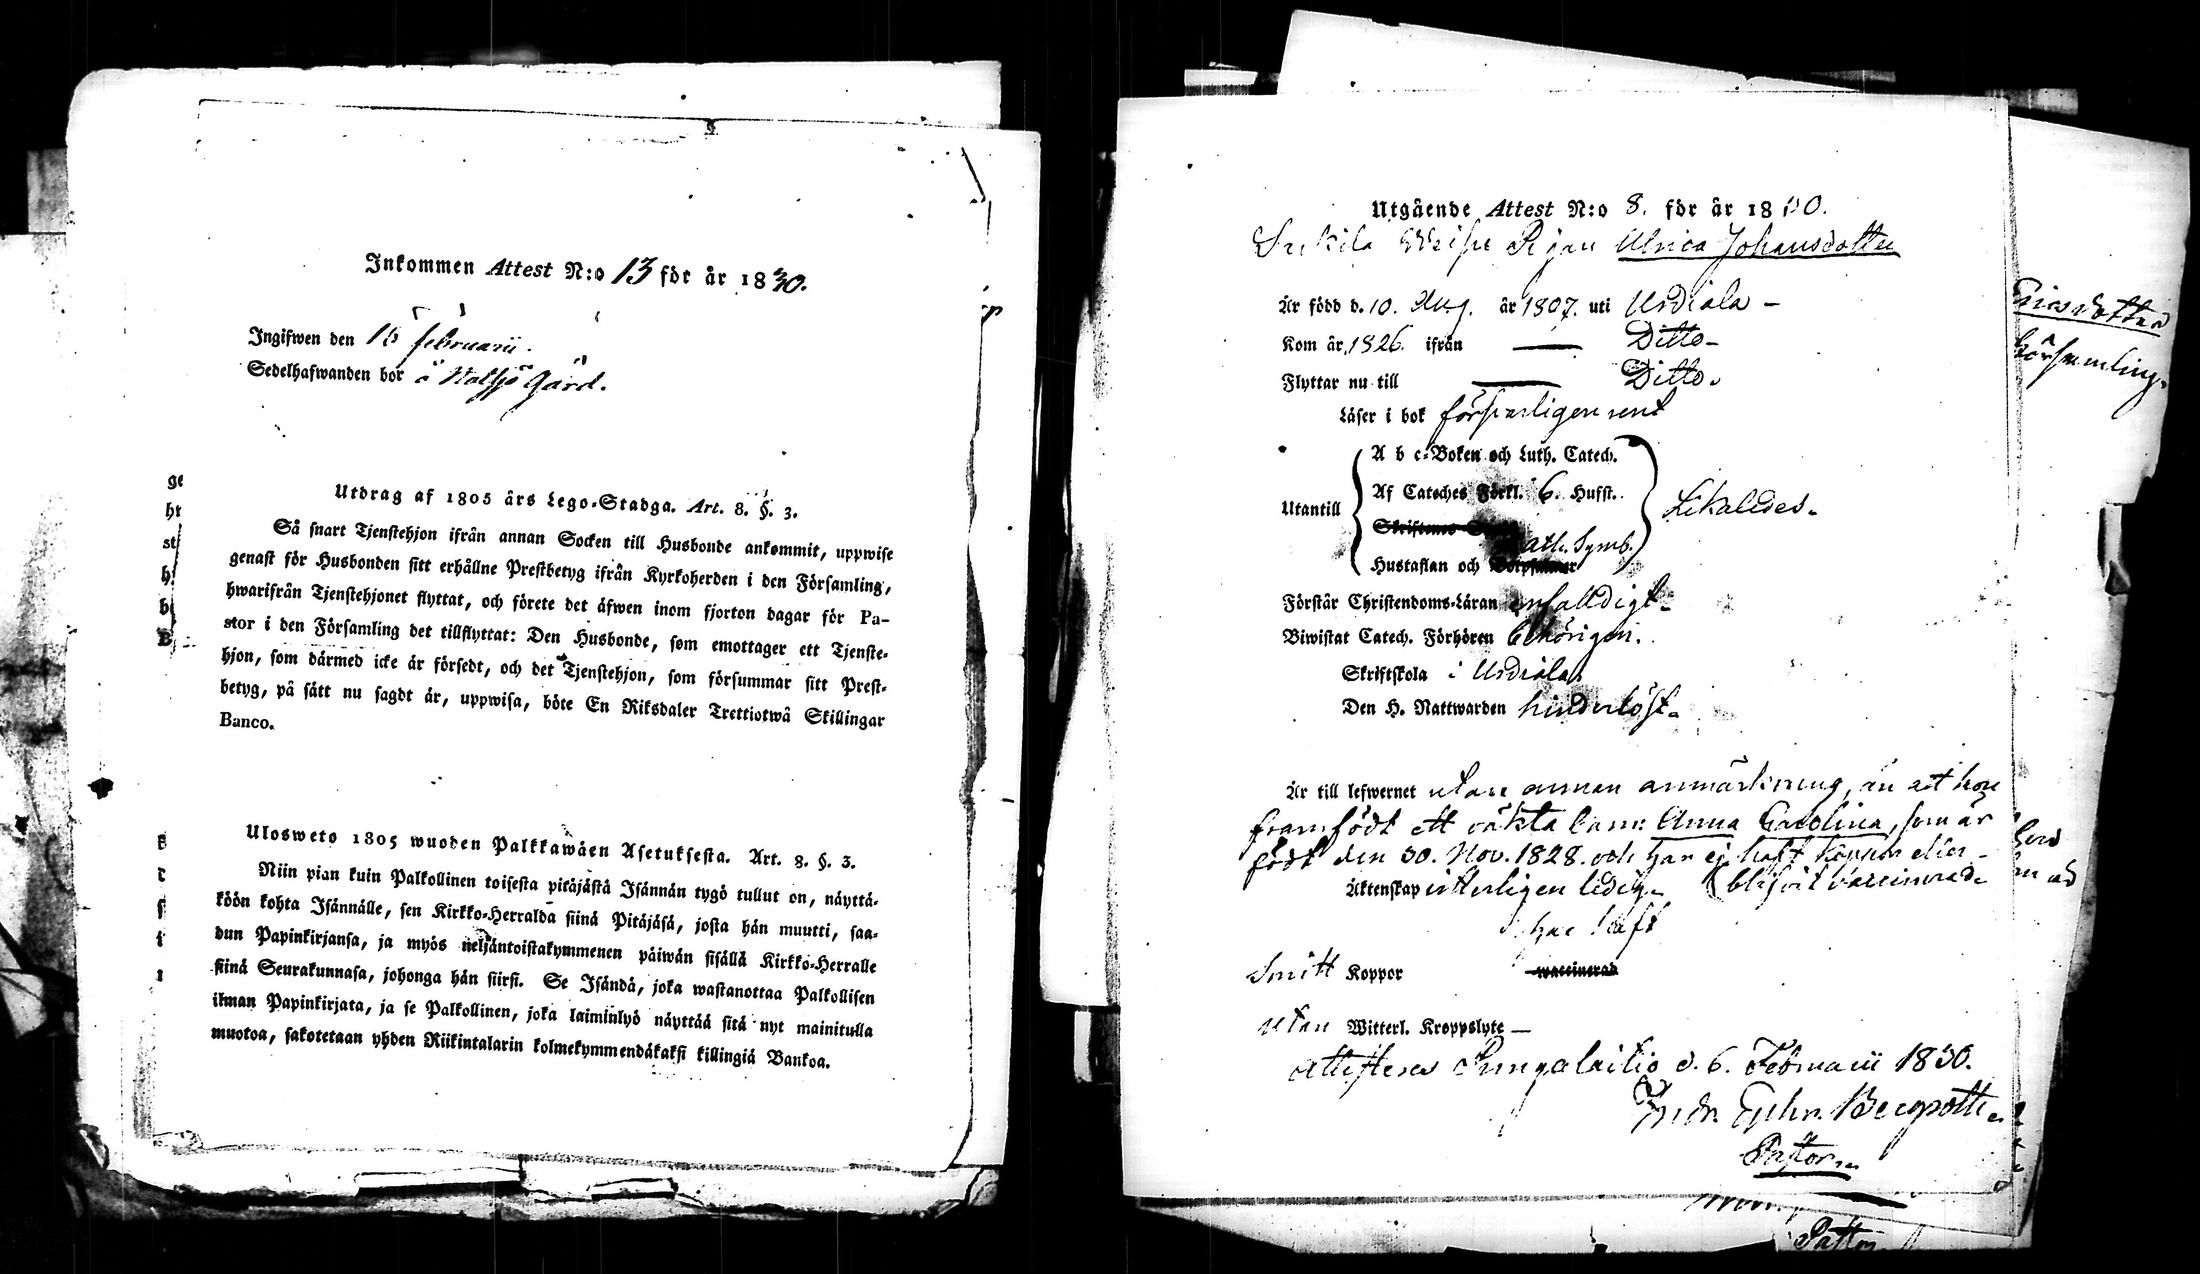 Inkommen Attest N:o 13 för år 1830.
Ingifwen den 15 februarii.
Sedelhafwanden bor å Nolsjö Gård.
Utdrag af 1805 års Lego-Stadga. Art. 8. §. 3.
Så snart Tjenstehjon ifrån annan Socken till Husbonde ankommit, uppwise
genast för Husbonden sitt erhållne Prestbetyg ifrån Kyrkoherden i den Församling,
hwarifrån Tjenstehjonet flyttat, och förete det äfwen inom fjorton dagar för Pa-
stor i den Församling det tillflyttat: Den Husbonde, som emottager ett Tjenste-
hjon, som därmed icke är försedt, och det Tjenstehjon, som försummar sitt Prest-
betyg, på sätt nu sagdt är, uppwisa, böte En Riksdaler Trettiotwå Skillingar
Banco.
Ulosweto 1805 wuoden Palkkawäen Asetuksesta. Art. 8. §. 3.
Niin pian kuin Palkollinen toisesta pitäjästä Isännän tygö tullut on, näyttä-
köön kohta Isännälle, sen Kirkko-Herralda siinä Pitäjäsä, josta hän muutti, saa-
dun Papinkirjansa, ja myös neljäntoistakymmenen päiwän sisällä Kirkko-Herralle
siinä Seurakunnasa, johonga hän siirsi. Se Isändä, joka wastanottaa Palkollisen
ilman Papinkirjata, ja se Palkollinen, joka laiminlyö näyttää sitä nyt mainitulla
muotoa, sakotetaan yhden Riikintalarin kolmekymmendäkaksi killingiä Bankoa.
Utgående Attest N:o 8. för år 1830.
Pigan Ulrica Johansdotter
Är född d. 10. Aug. år 1807. uti Urdiala -
Kom år 1826. ifrån — Ditto -
Flyttar nu till — Ditto.
Läser i bok försvarligen rent
A b c-Boken och Luth. Catech.
Af Cateches Förkl. 6. Hufst.
Utantill Likaledes.
Ath. Symb.
Hustaflan och
Förstår Christendoms-Läran enfalldigt.
Biwistat Catech. Förhören behörigen.
Skriftskola i Urdiala
Den H. Nattwarden hinderlöst.
Är till lefwernet utan annan anmärkning, än att hon
framfödt ett oäkta barn: Anna Carolina, som är
född den 30. Nov. 1828. och har ej haft koppor eller
Äktenskap witterligen ledig. (blifvit vaccinerad.
har haft
Smitt Koppor waccinerad
utan Witterl. Kroppslyte —
Attesteras Pungalaitio d. 6. Februarii 1830.
Andr. Ephr. Bergroth
Pastor
Ericsdotter
församling.
Pastor